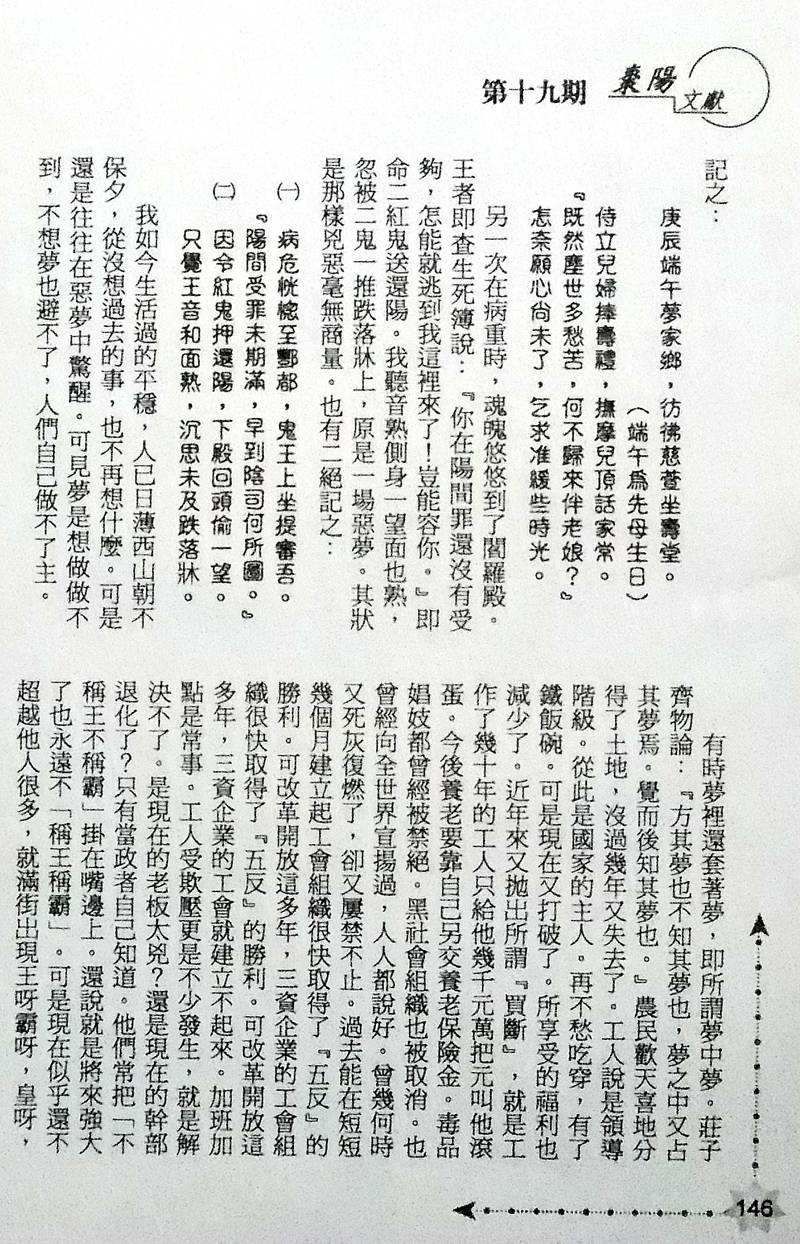 第十九期
棗陽
文獻
記之：
庚辰端午夢家鄉，彷彿慈萱坐壽堂。
（端午為先母生日）
侍立兒婦捧壽禮，撫摩兒頂話家常。
『既然塵世多愁苦，何不歸來伴老娘？』
怎奈願心尚未了，乞求准緩些時光。
另一次在病重時，魂魄悠悠到了閻羅殿。
王者即查生死簿說：『你在陽間罪還沒有受
夠，怎能就逃到我這裡來了！豈能容你。』即
命二紅鬼送還陽。我聽音熟側身一望面也熟，
忽被二鬼一推跌落牀上，原是一場惡夢。其狀
是那樣兇惡毫無商量。也有二絕記之：
㈠　病危恍惚至酆都，鬼王上坐提審吾。
『陽間受罪未期滿，早到陰司何所圖。』
㈡　因令紅鬼押還陽，下殿回頭偷一望。
只覺王音和面熟，沉思未及跌落牀。
我如今生活過的平穩，人已日薄西山朝不
保夕，從沒想過去的事，也不再想什麼。可是
還是往往在惡夢中驚醒。可見夢是想做做不
到，不想夢也避不了，人們自己做不了主。
有時夢裡還套著夢，即所謂夢中夢。莊子
齊物論：『方其夢也不知其夢也，夢之中又占
其夢焉。覺而後知其夢也。』農民歡天喜地分
得了土地，沒過幾年又失去了。工人說是領導
階級。從此是國家的主人。再不愁吃穿，有了
鐵飯碗。可是現在又打破了。所享受的福利也
減少了。近年來又拋出所謂『買斷』，就是工
作了幾十年的工人只給他幾千元萬把元叫他滾
蛋。今後養老要靠自己另交養老保險金。毒品
娼妓都曾經被禁絕。黑社會組織也被取消。也
曾經向全世界宣揚過，人人都說好。曾幾何時
又死灰復燃了，卻又屢禁不止。過去能在短短
幾個月建立起工會組織很快取得了『五反』的
勝利。可改革開放這多年，三資企業的工會組
織很快取得了『五反』的勝利。可改革開放這
多年，三資企業的工會就建立不起來。加班加
點是常事。工人受欺壓更是不少發生，就是解
決不了。是現在的老板太兇？還是現在的幹部
退化了？只有當政者自己知道。他們常把「不
稱王不稱霸」掛在嘴邊上。還說就是將來強大
了也永遠不「稱王稱霸」。可是現在似乎還不
超越他人很多，就滿街出現王呀霸呀，皇呀，
146